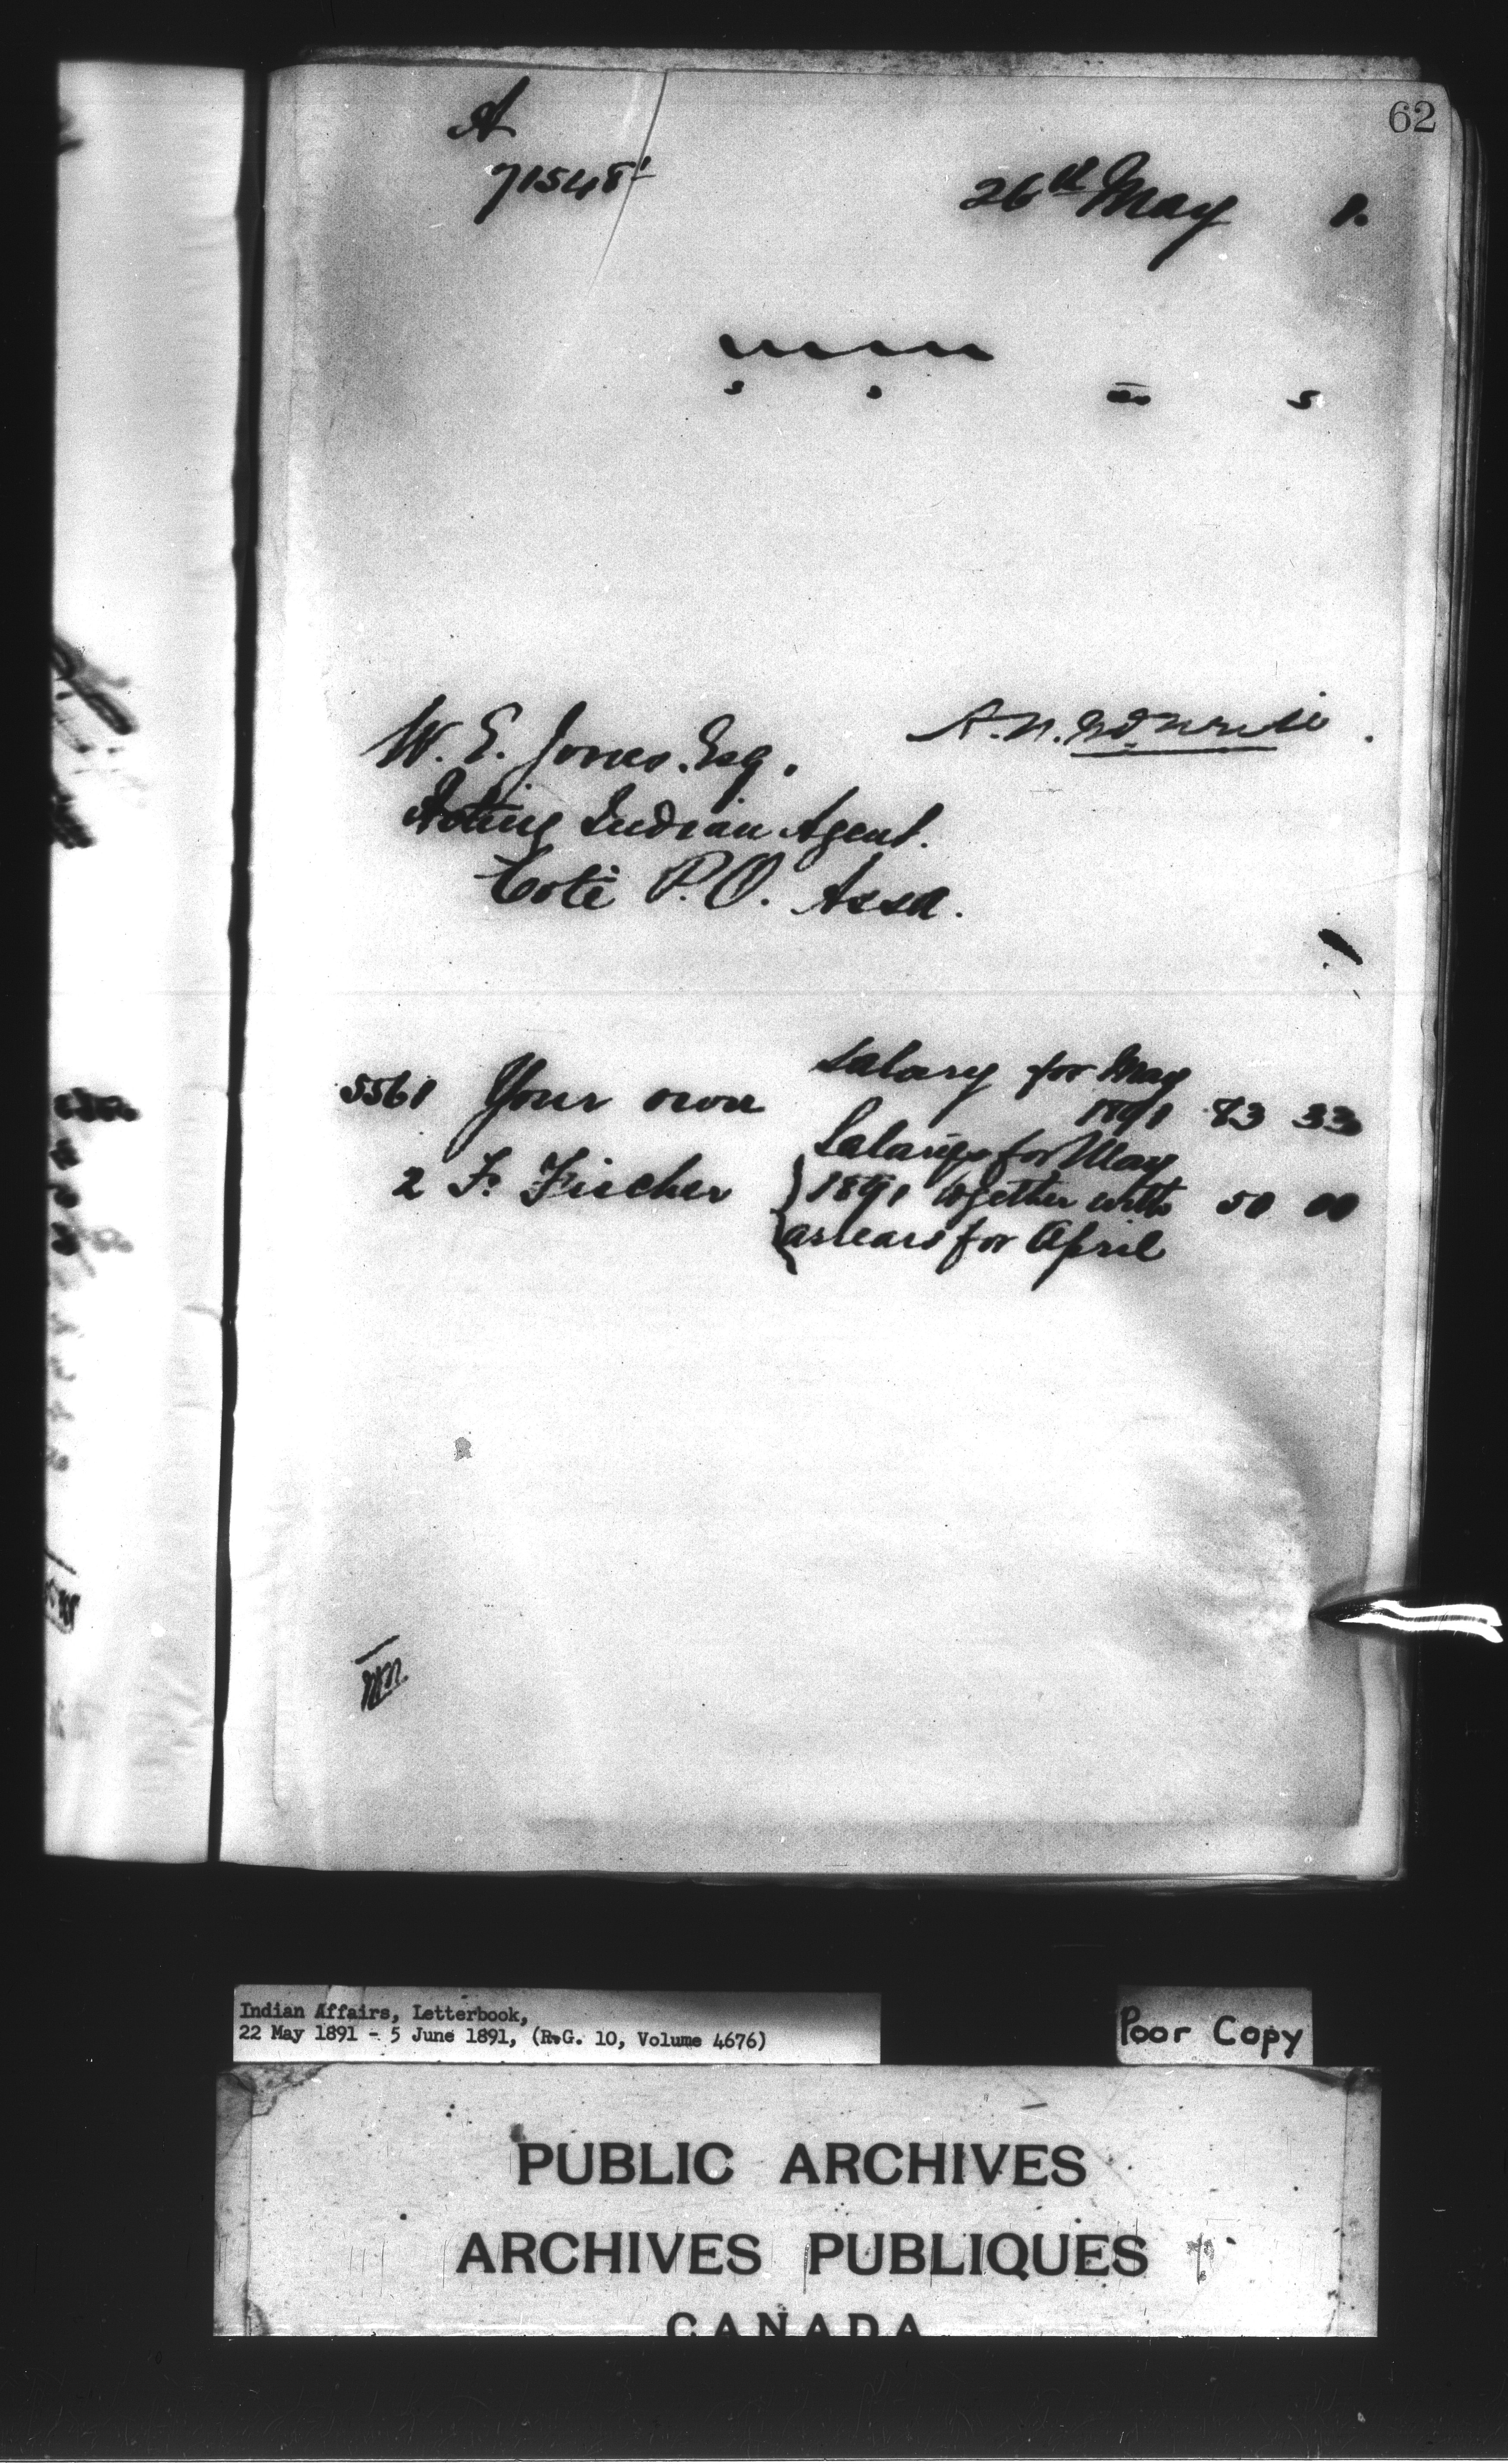 62
A
71548
26th May 1.
s s s
W. E. Jones. Esq.
Acting Indian Agent.
Coté P.O. Assa.
Salary for May
5561 Your own 1891 83 33
Salary for May
2 F. Fischer 1891 together with 50 00
arrears for April
Indian Affairs, Letterbook,
22 May 1891 - 5 June 1891, (R.G. 10, Volume 4676)
Poor Copy
PUBLIC ARCHIVES
ARCHIVES PUBLIQUES
CANADA